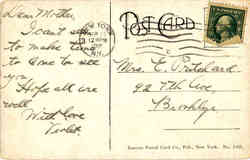 Dear Mother
I can't
to make time
to come to see
you
Hope all are
well
With love
Violet
POST CARD
NEW YORK
12
Mrs. E. Pritchard.
92 7th Ave,
Brooklyn
Success Postal Card Co., Pub., New York. No.